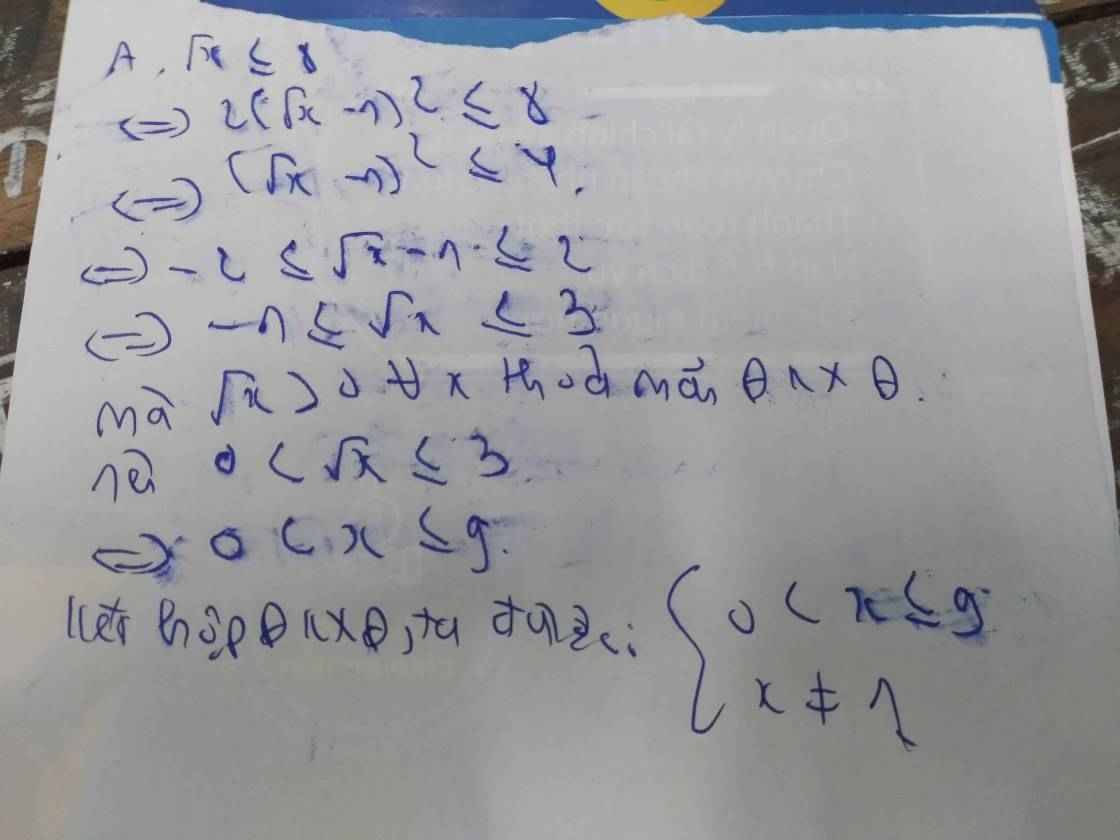 A . √x ≤ 8
⇔ 2(√x - 1)² ≤ 8
⇔ (√x - 1)² ≤ 4.
⇔ - 2 ≤ √x - 1 ≤ 2
⇔ - 1 ≤ √x ≤ 3
mà √x > 0 ∀ x thoả mãn ĐKXĐ.
nên 0 < √x ≤ 3
⇔ 0 < x ≤ 9.
Kết hợp ĐKXĐ, ta được: { 0 < x ≤ 9
x ≠ 1